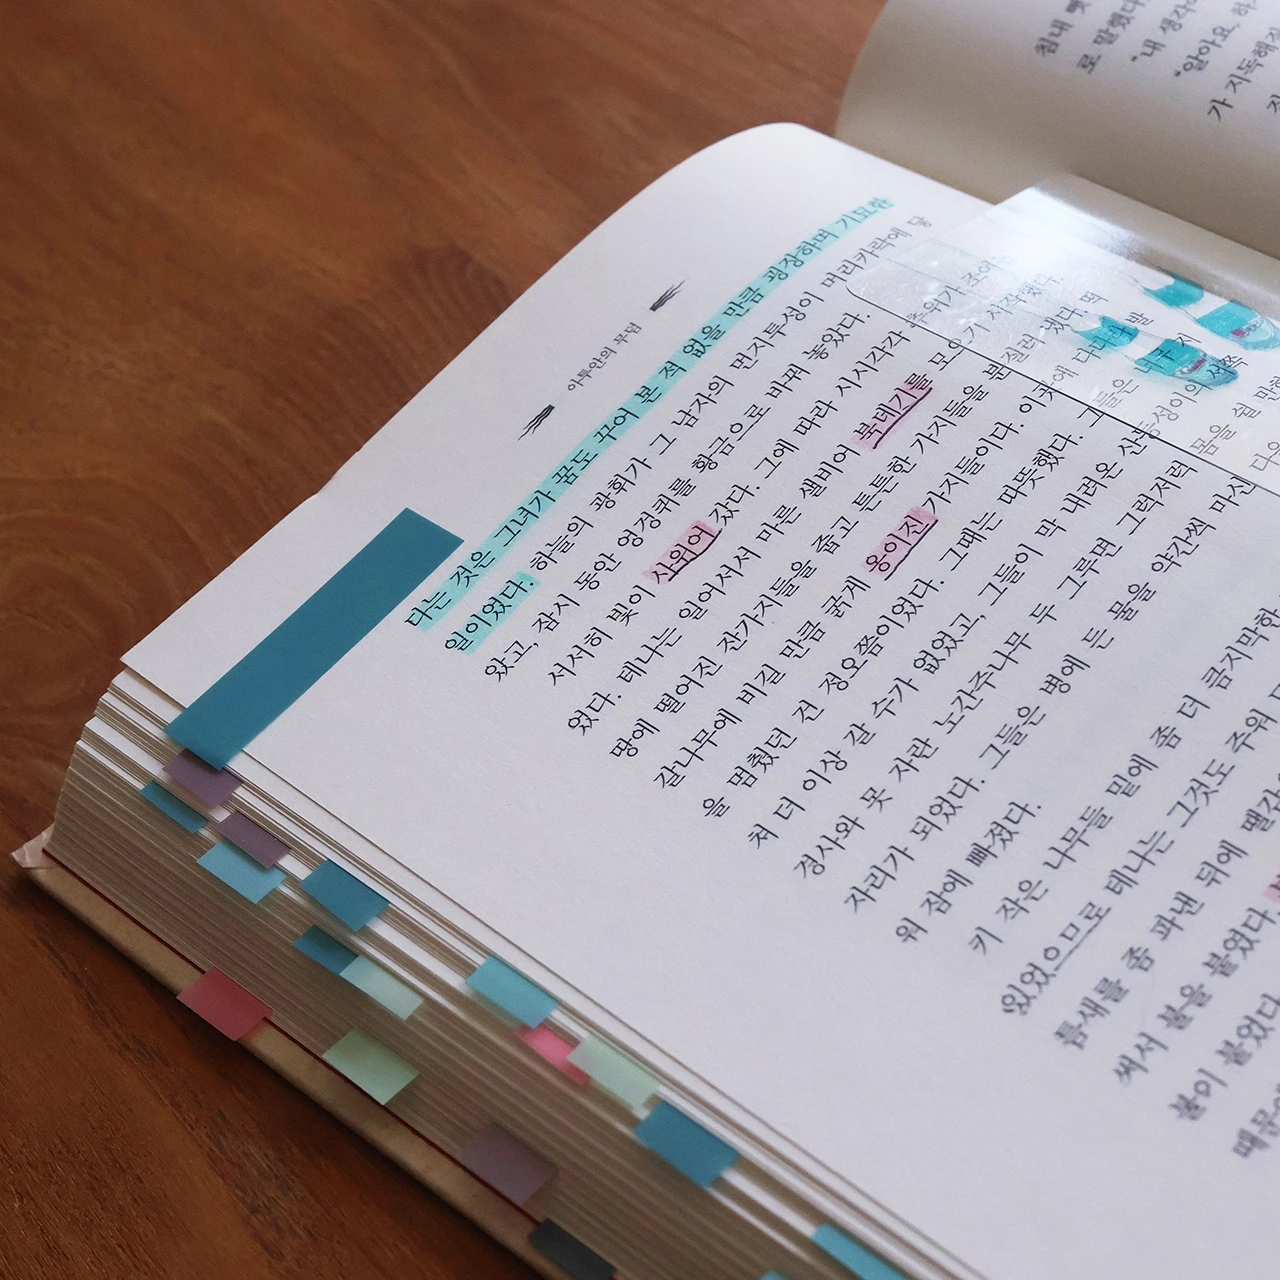 아투안의 무덤
다는 것은 그녀가 꿈도 꾸어 본 적 없을 만큼 굉장하며 기묘한
일이었다. 하늘의 광휘가 그 남자의 먼지투성이 머리카락에 닿
았고, 잠시 동안 엉겅퀴를 황금으로 바꿔 놓았다.
서서히 빛이 사위어 갔다. 그에 따라 시시각각 추위가 조여
었다. 테나는 일어서서 마른 샐비어 북데기를 모으기 시작했다.
땅에 떨어진 잔가지들을 줍고 튼튼한 가지들을 분질러 냈다. 떡
갈나무에 비길 만큼 굵게 옹이진 가지들이다. 이곳에 다다라 발
을 멈췄던 건 정오쯤이었다. 그때는 따뜻했다. 그들은 너무 지
쳐 더 이상 갈 수가 없었고, 그들이 막 내려온 산등성이의 서쪽
경사와 못 자란 노간주나무 두 그루면 그럭저럭 몸을 쉴 만한
자리가 되었다. 그들은 병에 든 물을 약간씩 마신 다음
워 잠에 빠졌다.
키 작은 나무들 밑에 좀 더 큼지막한
있었으므로 테나는 그것도 주워
틈새를 좀 파낸 뒤에 빨간
써서 불을 붙였다.
불이 붙었다.
때문에
침내
로 말했다
"내 생각
"알아요, 하
가 지독해질